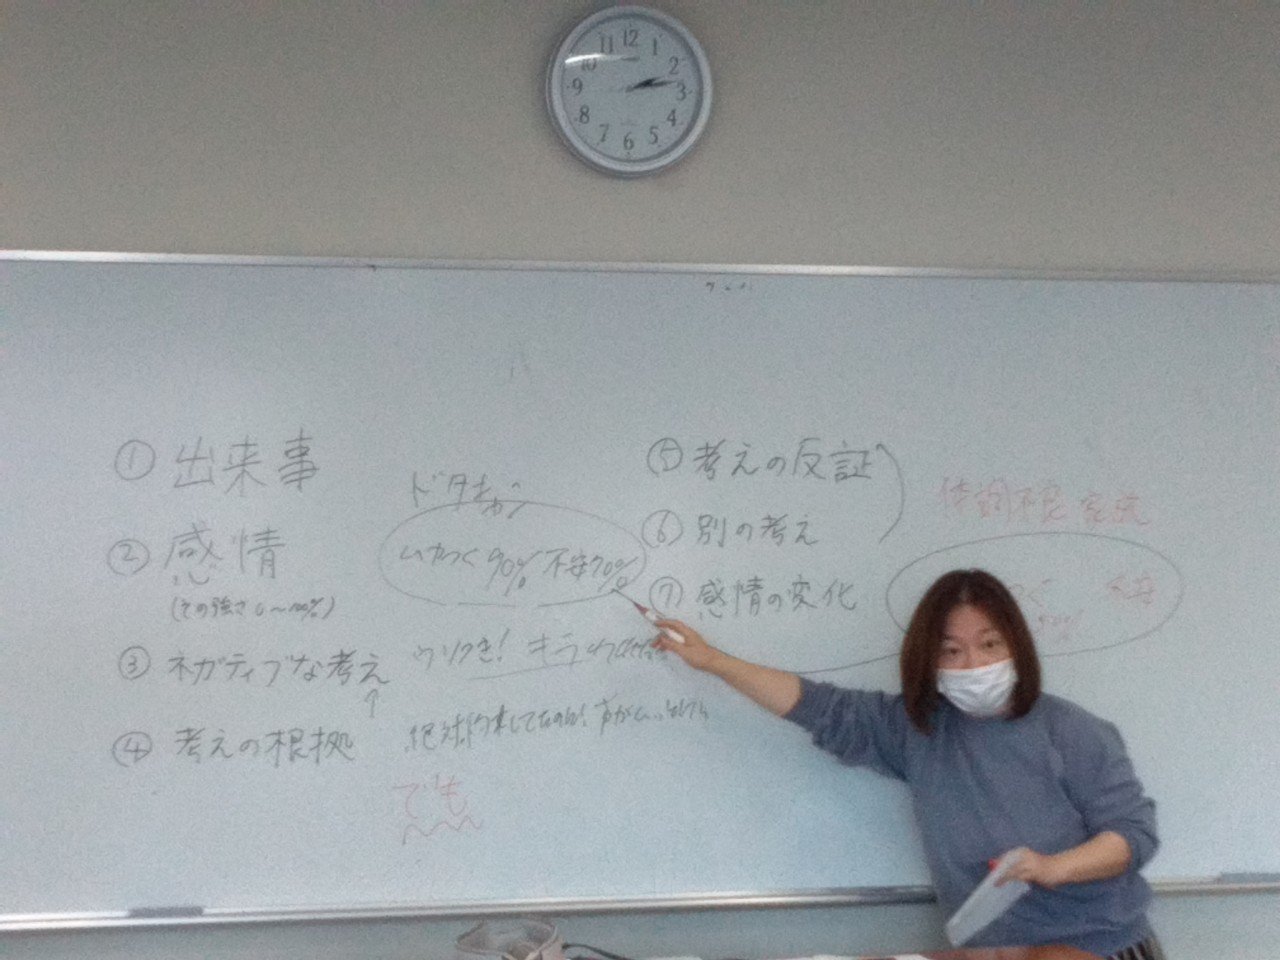 ① 出来事
② 感情
(その強さ 0〜100%)
③ ネガティブな考え
↑
④ 考えの根拠
ドタキャン
ムカつく 90% 不安70%
ウソつき! キラ
絶対約束してたのに!
でも
⑤ 考えの反証
⑥ 別の考え
⑦ 感情の変化
体調不良
不安
11 12 1
10 2
9 3
8 4
7 6 5